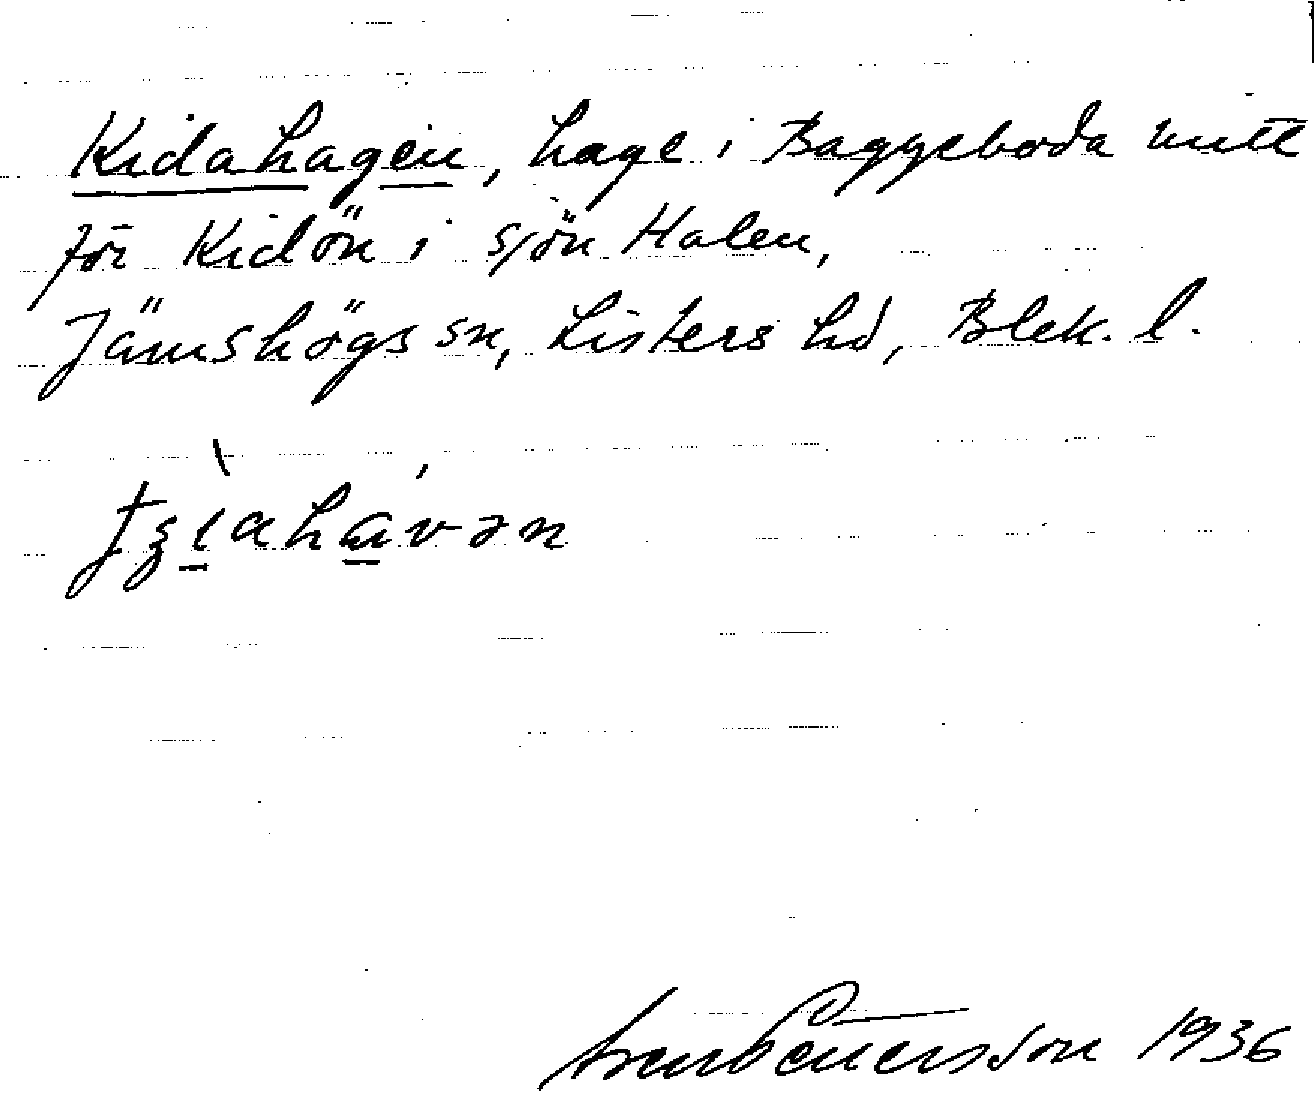 Kidahagen, hage i Baggeboda mitt
för Kidön i sjön Halen,
Jämshögs sn, Listers hd, Blek. l.
Sven Pettersson 1936